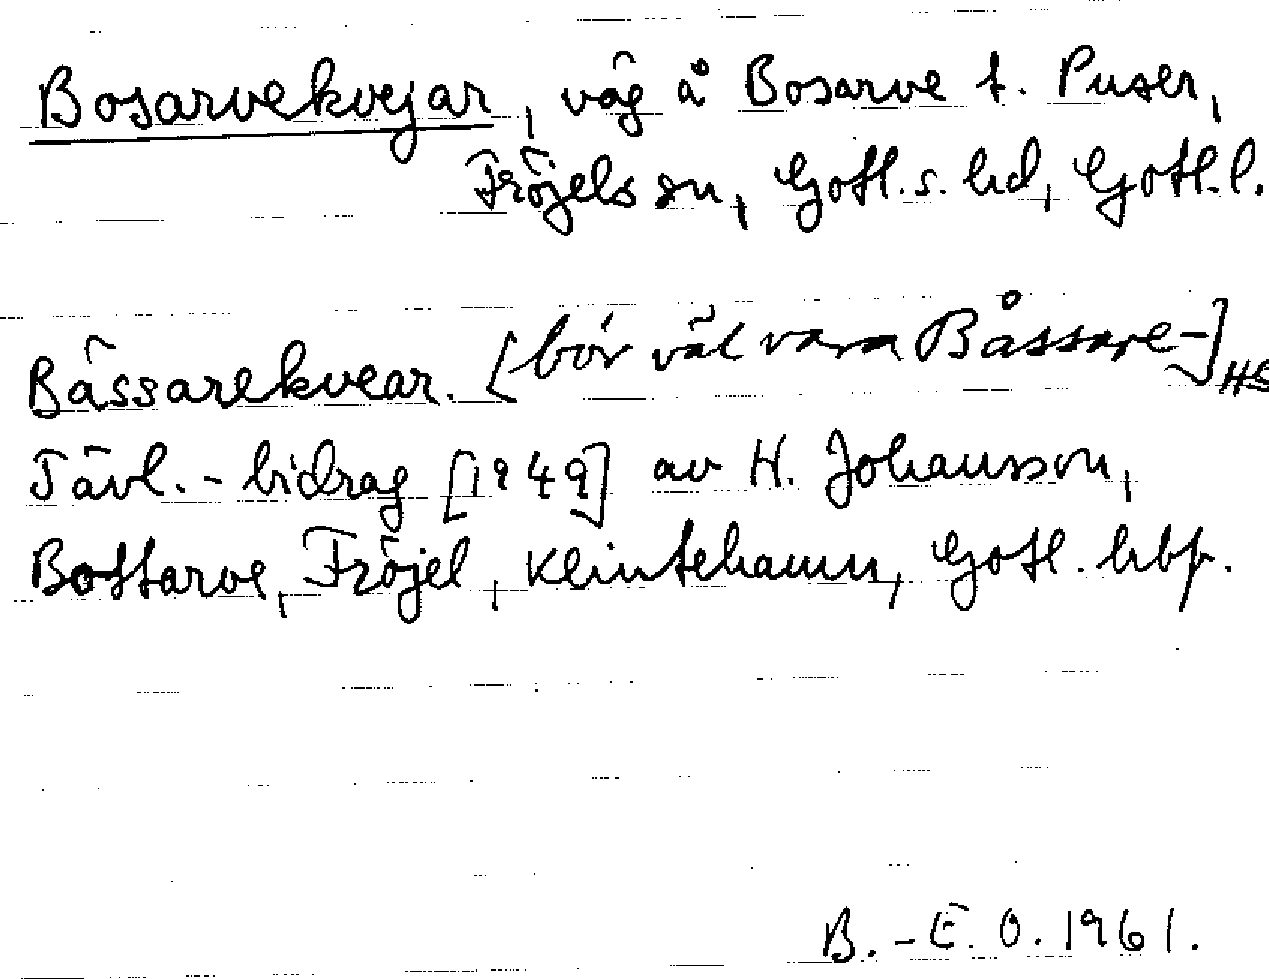 Bosarvekvejar, väg å Bosarve t. Puser,
Fröjels sn, Gotl. s. hd, Gotl. l.
Bässarekvear. [bör väl vara Båssare-] HS
Tävl.-bidrag [1949] av H. Johansson,
Bottarve, Fröjel, Klintehamn, Gotl. hbf.
B.-E. O. 1961.